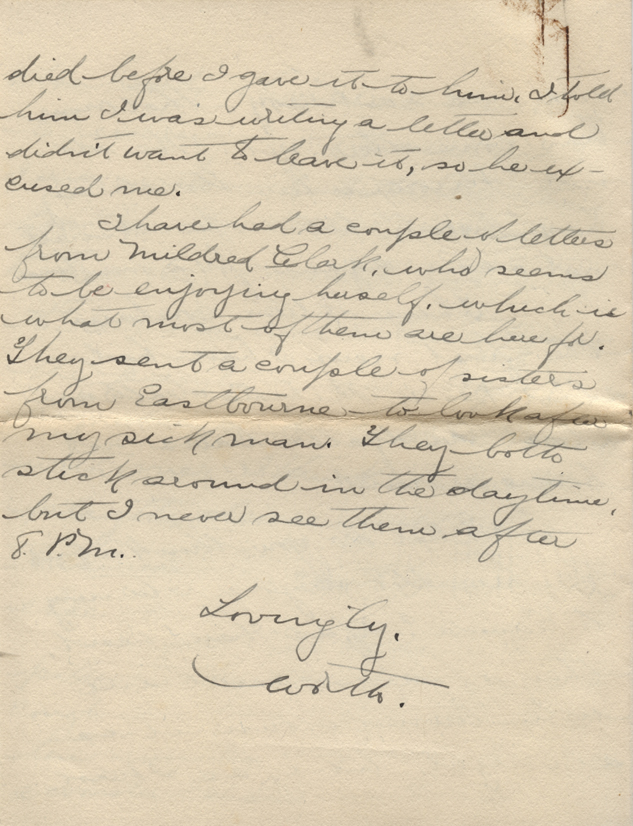 died before I gave it to him. I told
him I was writing a letter and
didn't want to leave it, so he ex-
cused me.
I have had a couple of letters
from Mildred Clark, who seems
to be enjoying herself, which is
what most of them are here for.
They sent a couple of sisters
from Eastbourne to look after
my sick man. They both
stick around in the daytime,
but I never see them after
8 P.M.
Lovingly,
Worth.